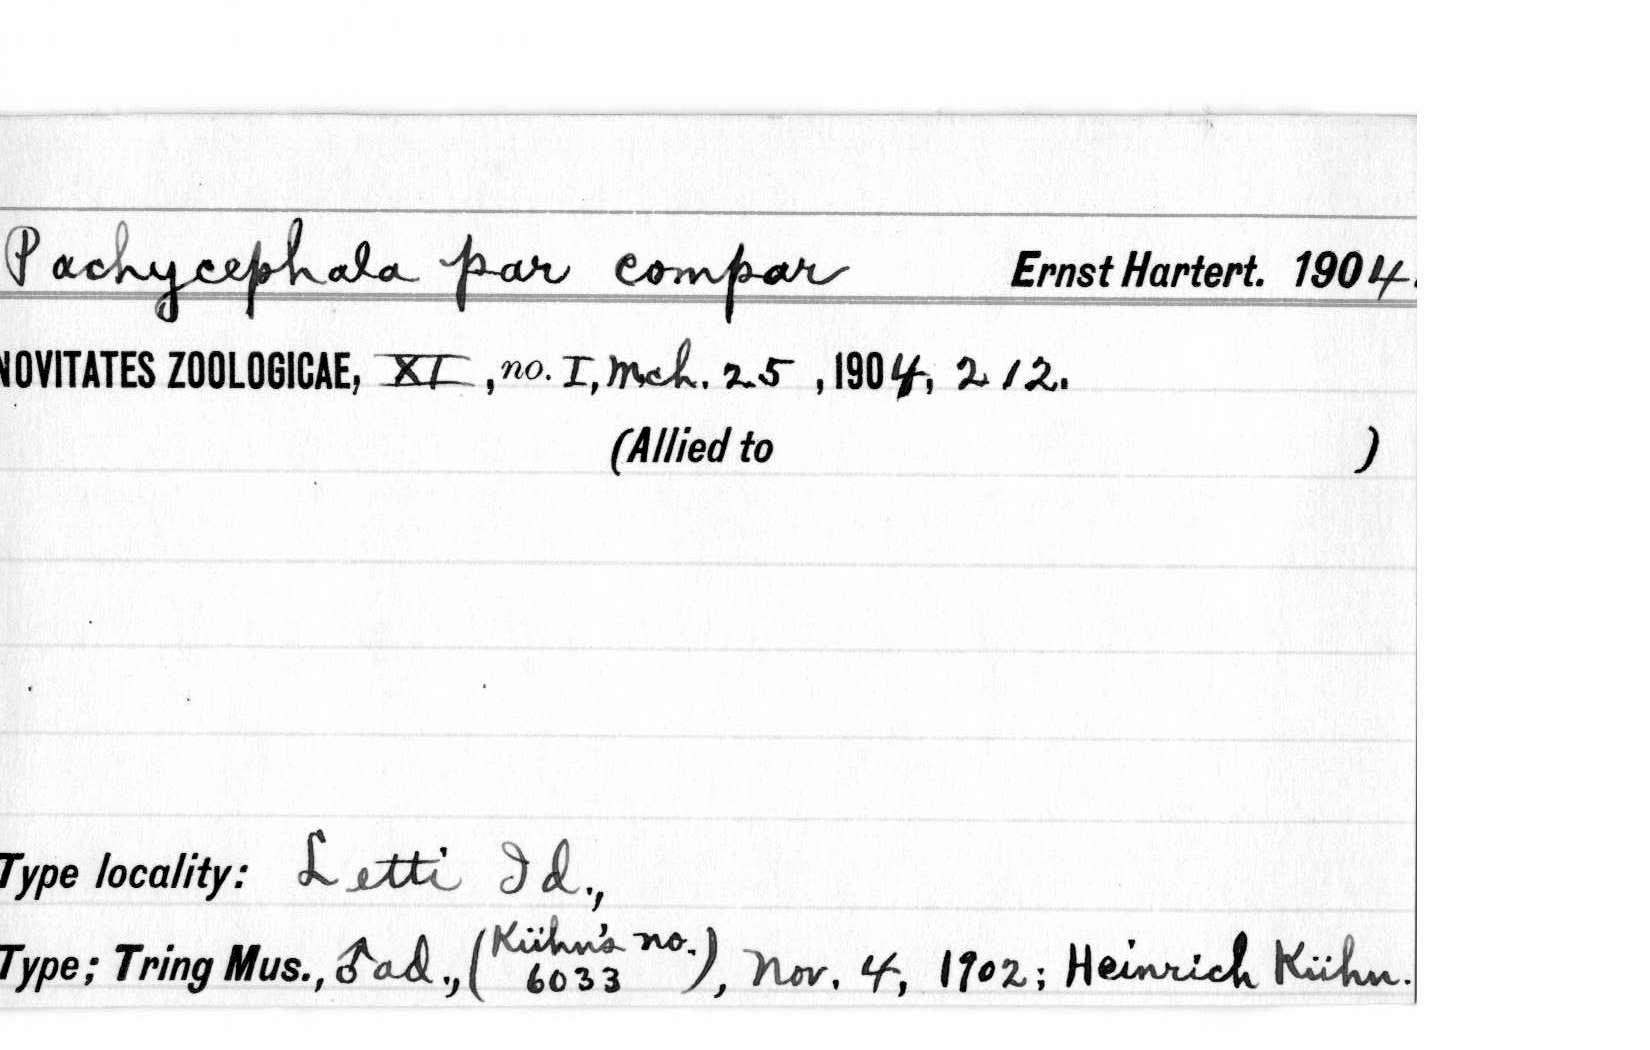 Pachycephala par compar Ernst Hartert. 1904.
NOVITATES ZOOLOGICAE, XI, no. I, Mch. 25, 1904, 212.
(Allied to )
Type locality: Letti Id.,
Type; Tring Mus., ♂ ad., (Kühn's no. 6033), Nov. 4, 1902; Heinrich Kühn.